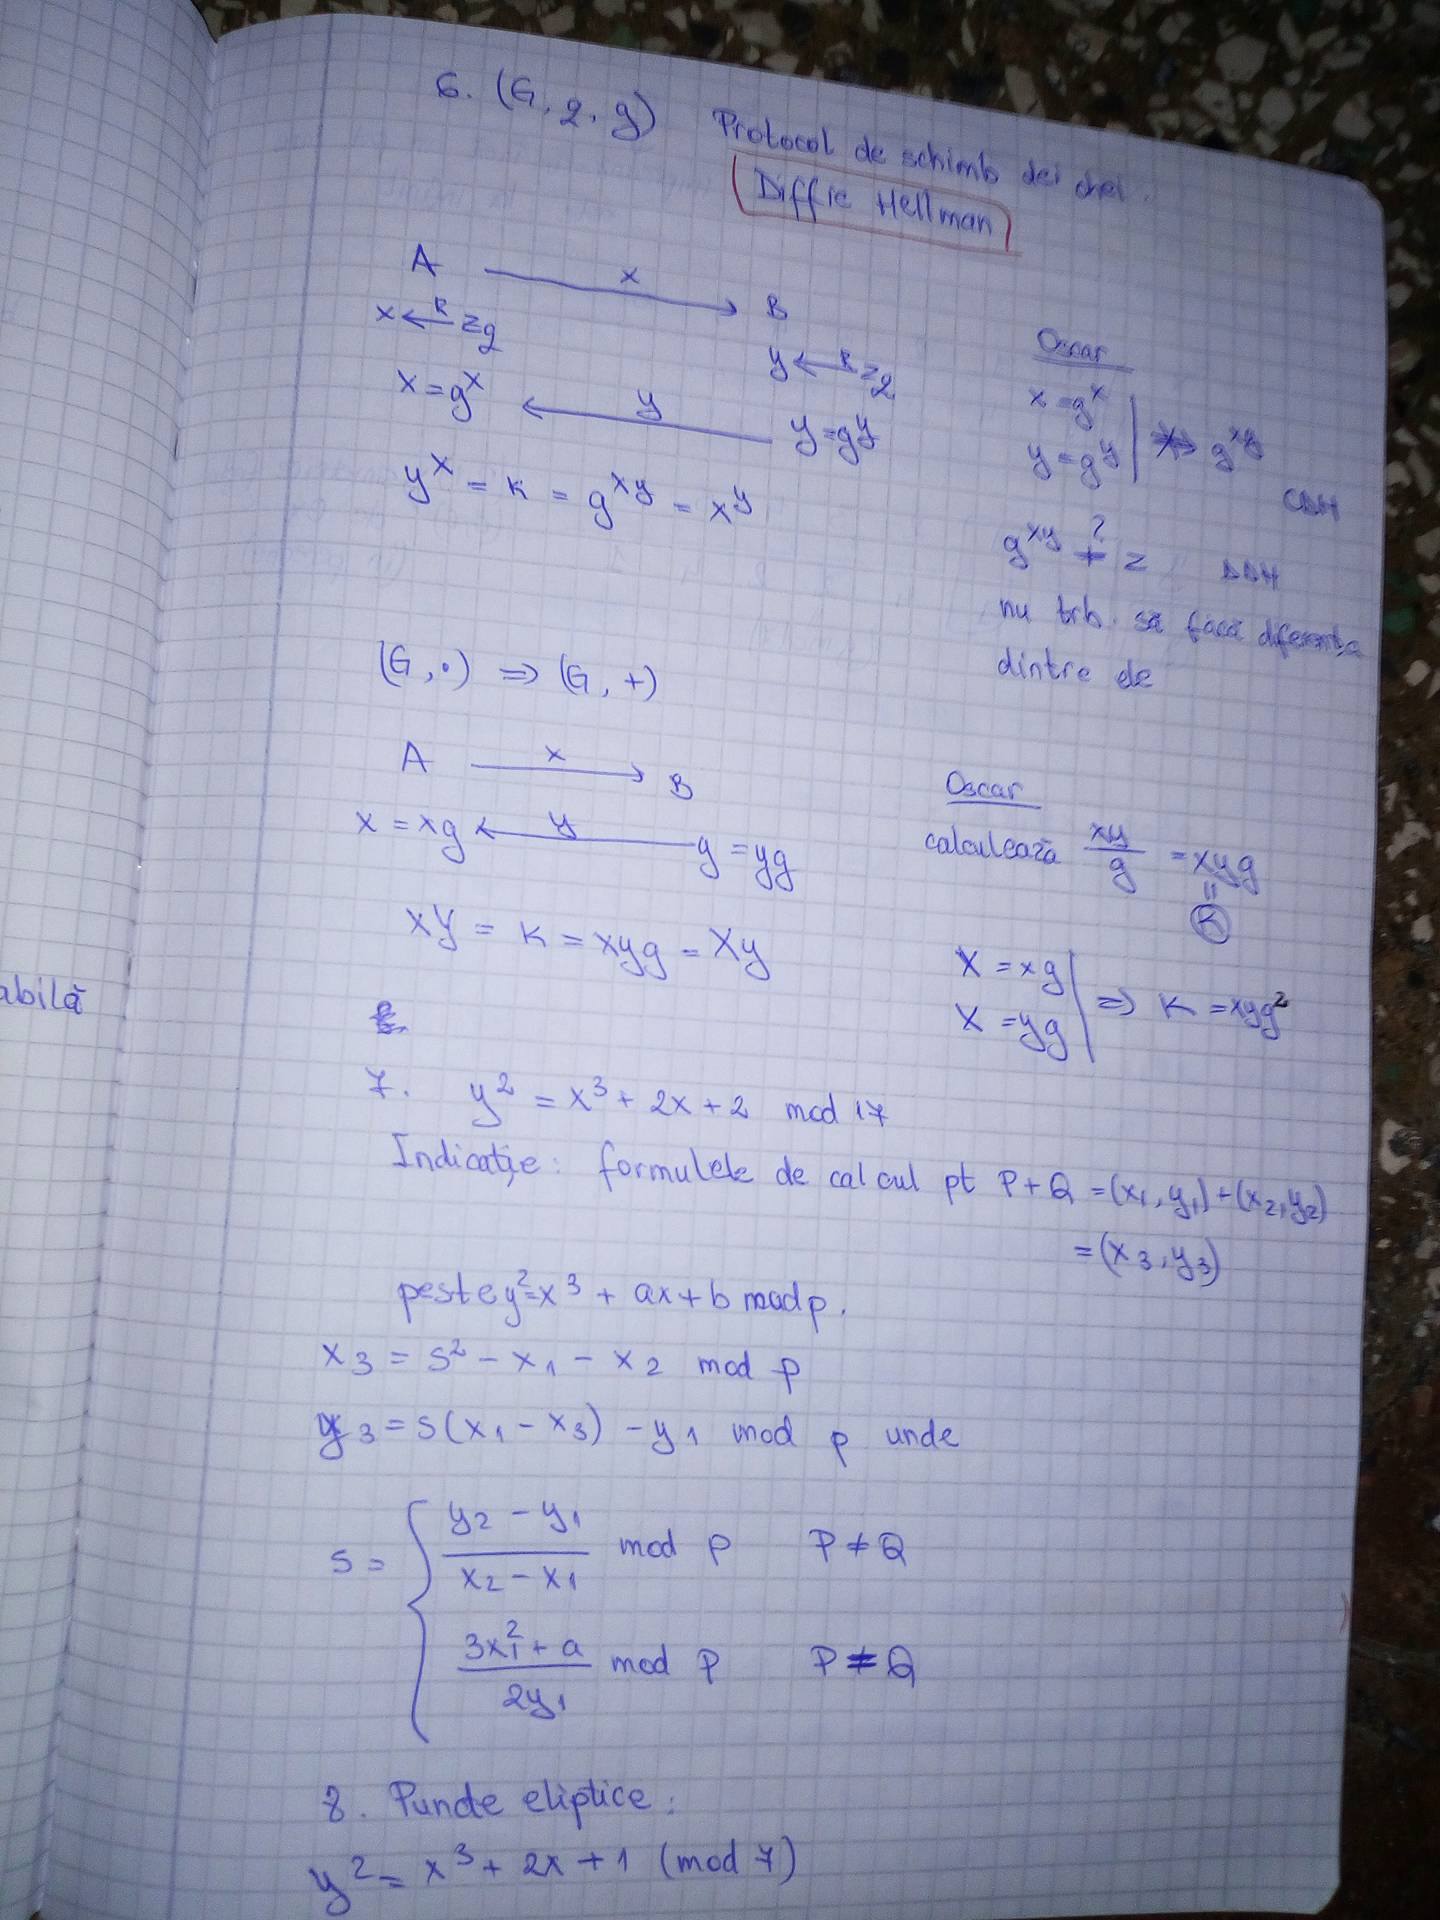 6. (G, q, g) Protocol de schimb dei chei.
Diffie Hellman
A x B
x ← R Zq
y ← R Zq
x = g^x y y = g^y
y^x = K = g^xy = x^y
Oscar
x = g^x
y = g^y ⇏ g^xy
CDH
g^xy ≟ z DDH
nu trb. să facă diferența
dintre ele
(G, ·) ⇒ (G, +)
A x B
x = xg y y = yg
xY = K = xyg = Xy
Oscar
calculează xy/g = xyg
=
K
X = xg
X = yg ⇒ K = xyg²
abilă
7. y² = x³ + 2x + 2 mod 17
Indicație: formulele de calcul pt P + Q = (x₁, y₁) + (x₂, y₂)
= (x₃, y₃)
peste y² = x³ + ax + b mod p.
x₃ = s² - x₁ - x₂ mod p
y₃ = s(x₁ - x₃) - y₁ mod p unde
s = { (y₂ - y₁)/(x₂ - x₁) mod p P ≠ Q
(3x₁² + a)/(2y₁) mod p P = Q
8. Puncte eliptice:
y² = x³ + 2x + 1 (mod 7)